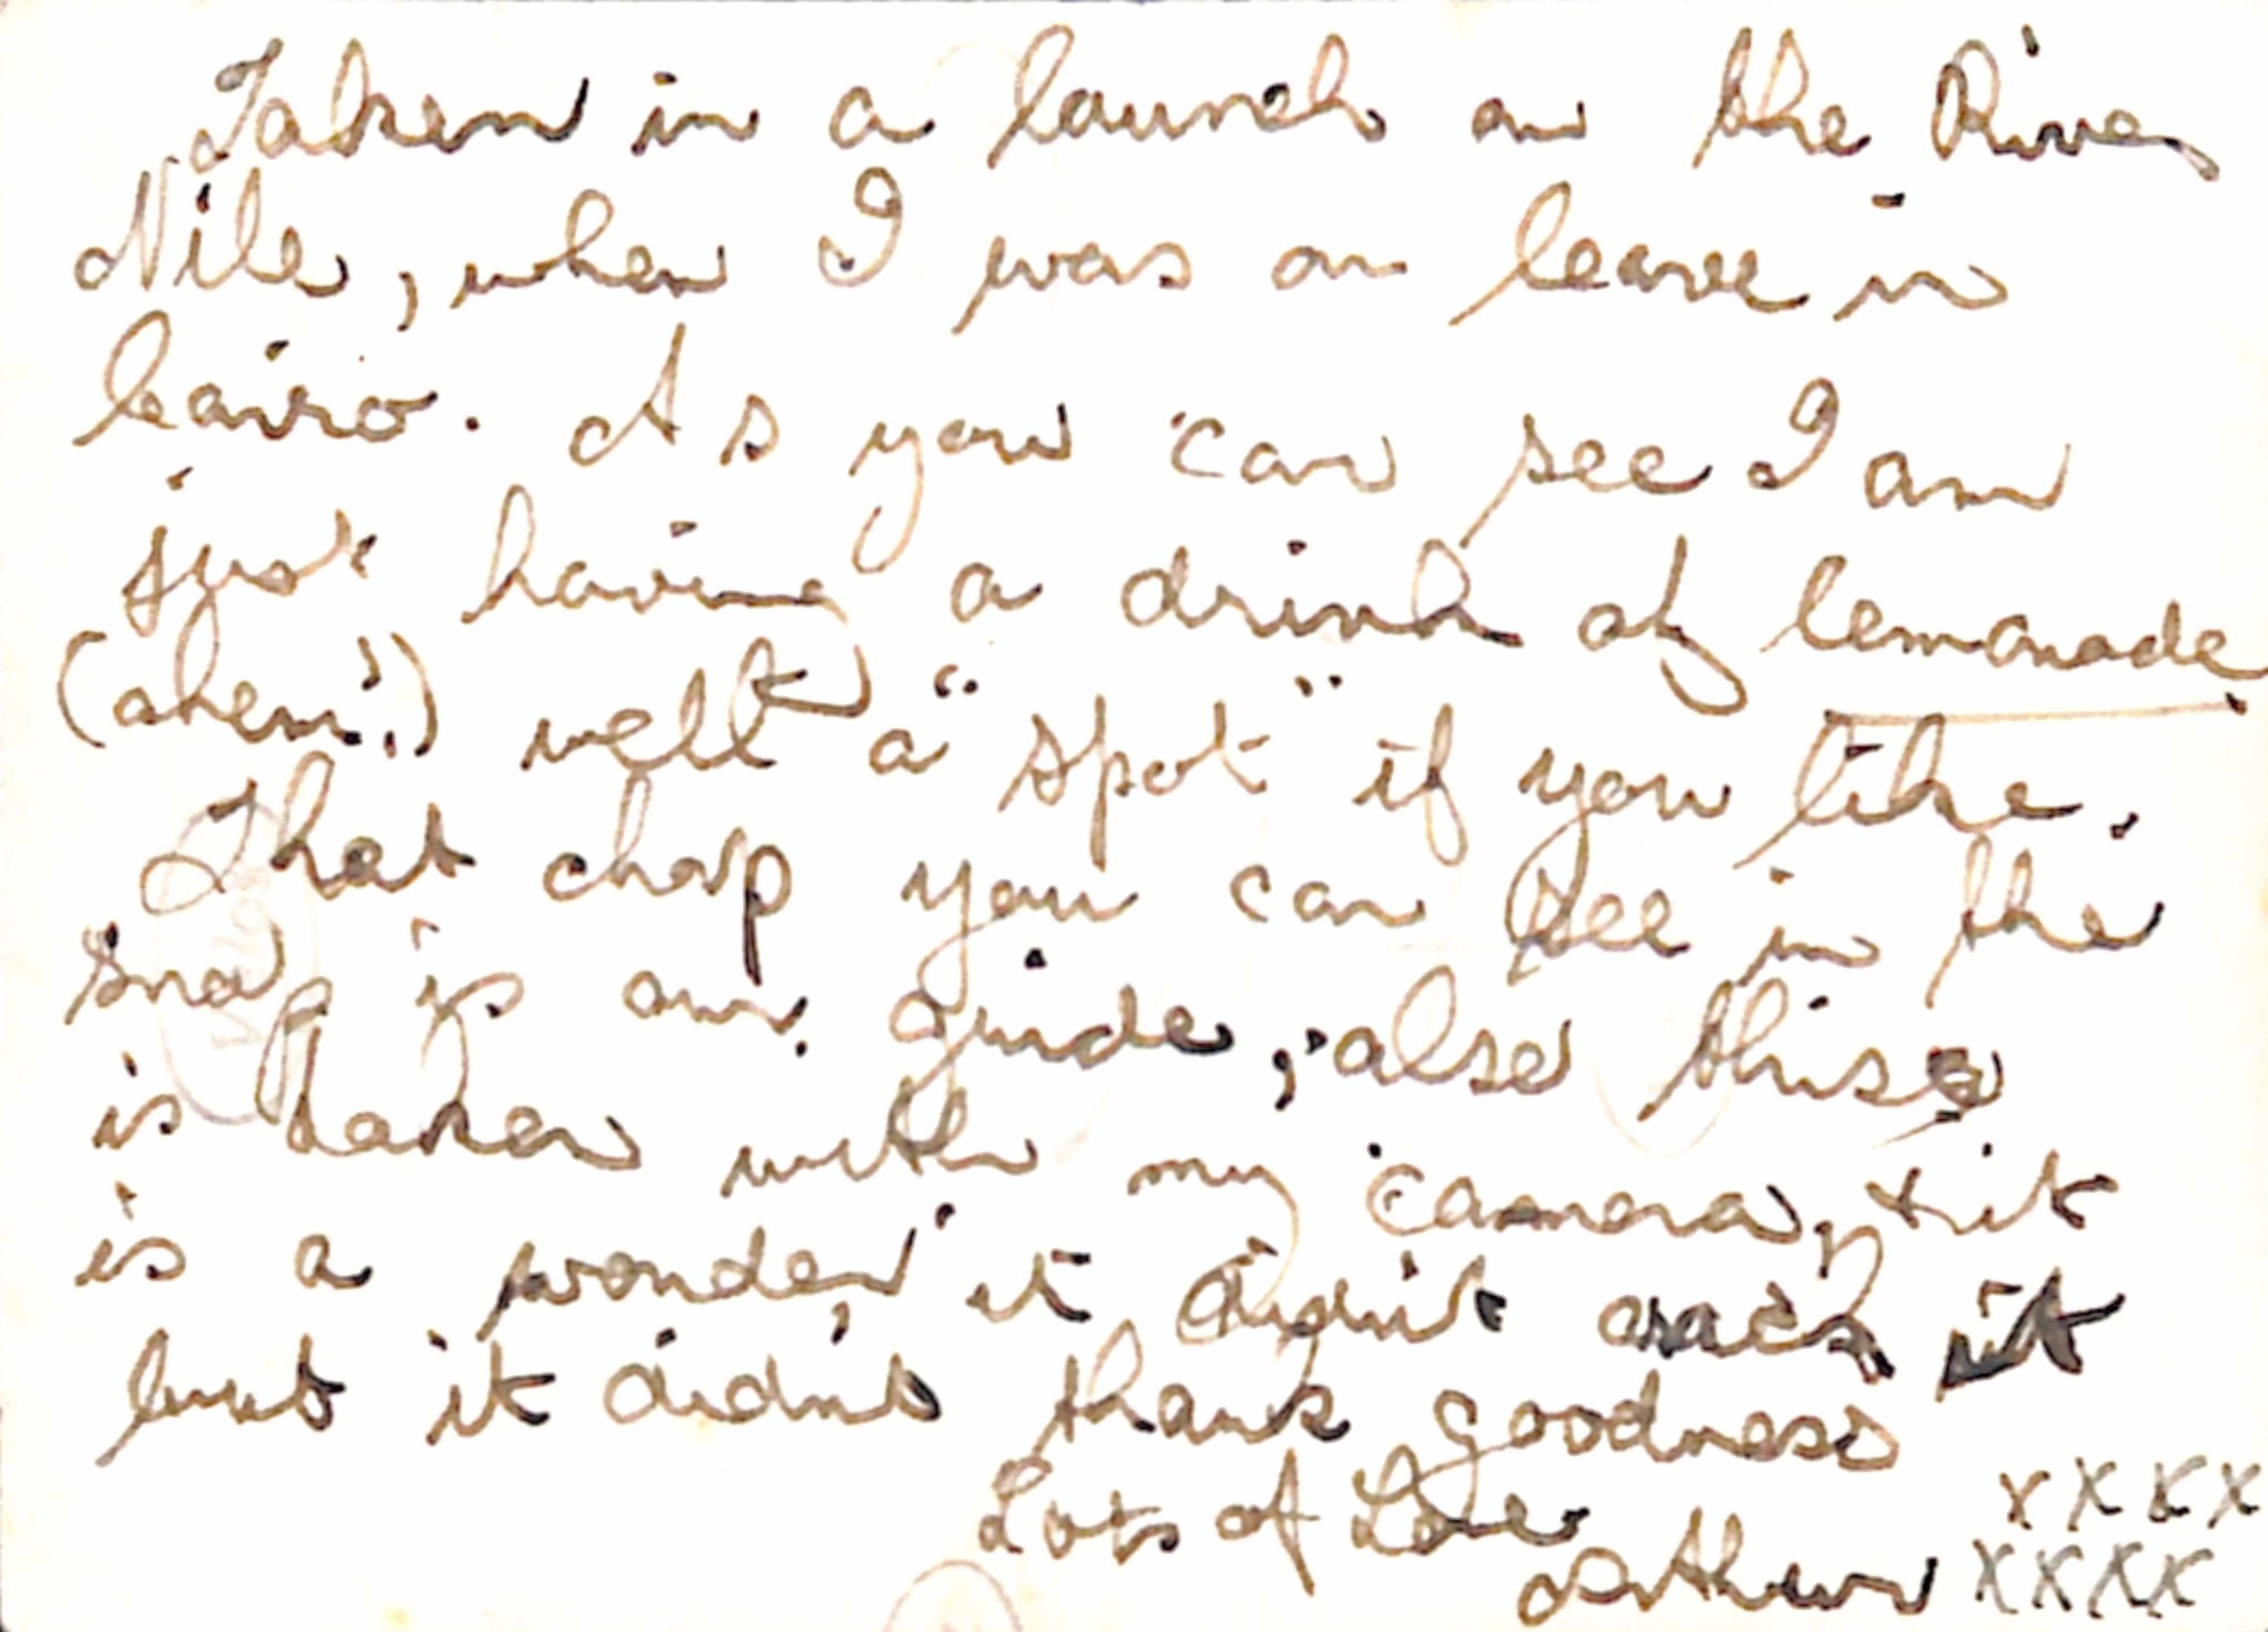 Taken in a launch on the River
Nile, when I was on leave in
Cairo. As you can see I am
just having a drink of lemonade
(ahem!) well a "spot" if you like.
That chap you can see in the
snap is our guide, also this
is taken with my camera, & it
is a wonder it didn't crack it
but it didn't thank goodness
Lots of Love XXXX
Arthur XXXX